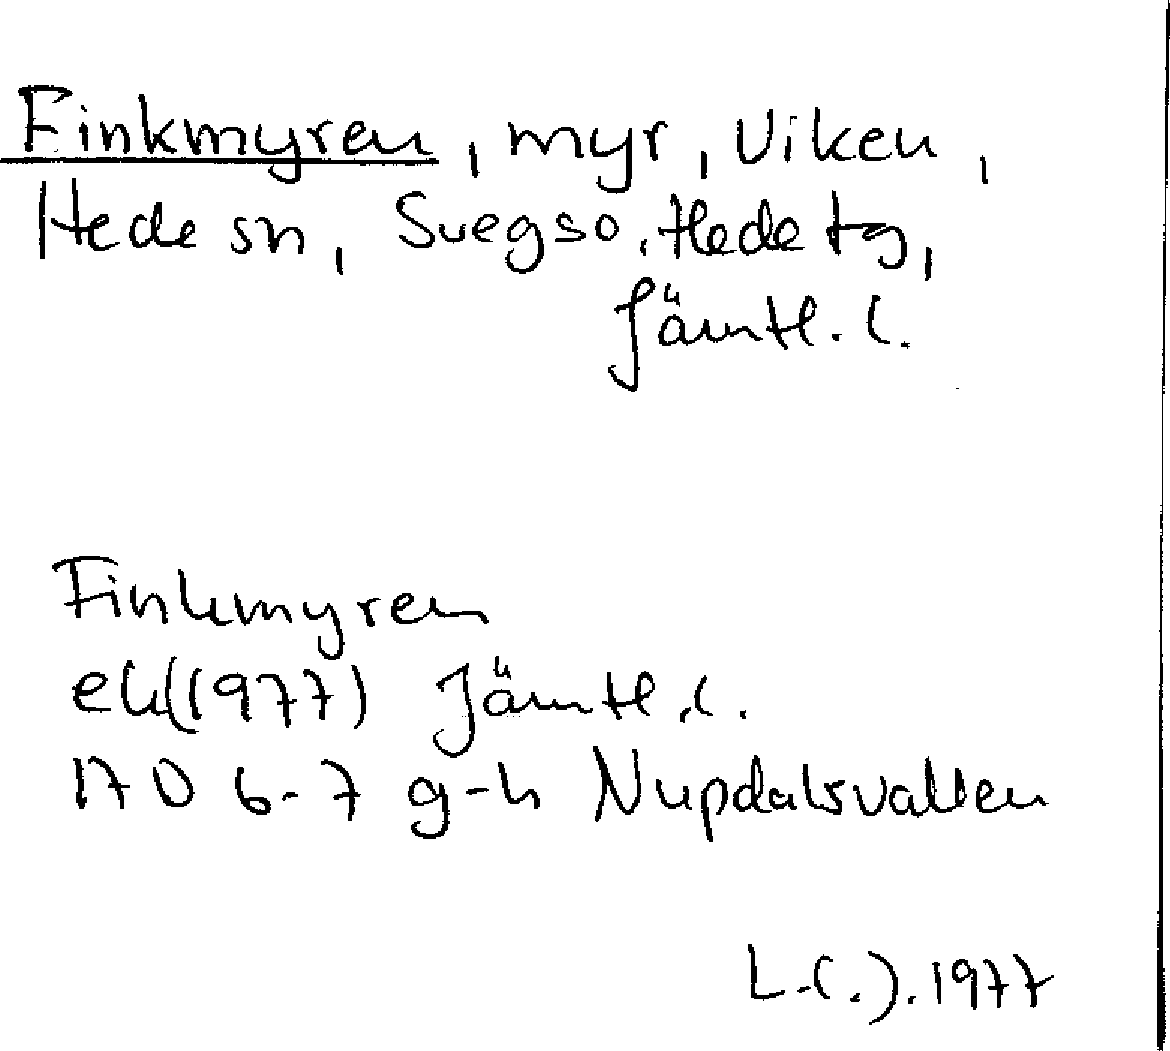 Finkmyren, myr, Viken,
Hede sn, Svegs o. Hede tg,
Jämtl. l.
Finkmyren
ek (1977) Jämtl. l.
17D 6-7 g-h Nupdalsvallen
1977